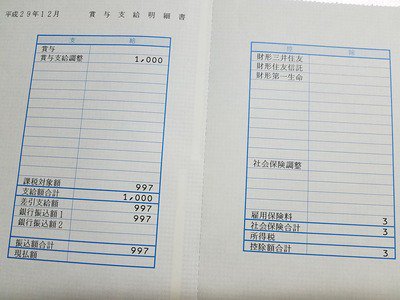 平成29年12月 賞与支給明細書
支 給
賞与
賞与支給調整 1,000
課税対象額 997
支給額合計 1,000
差引支給額 997
銀行振込額1 997
銀行振込額2
振込額合計 997
現払額
控 除
財形三井住友
財形住友信託
財形第一生命
社会保険調整
雇用保険料 3
社会保険合計 3
所得税
控除額合計 3